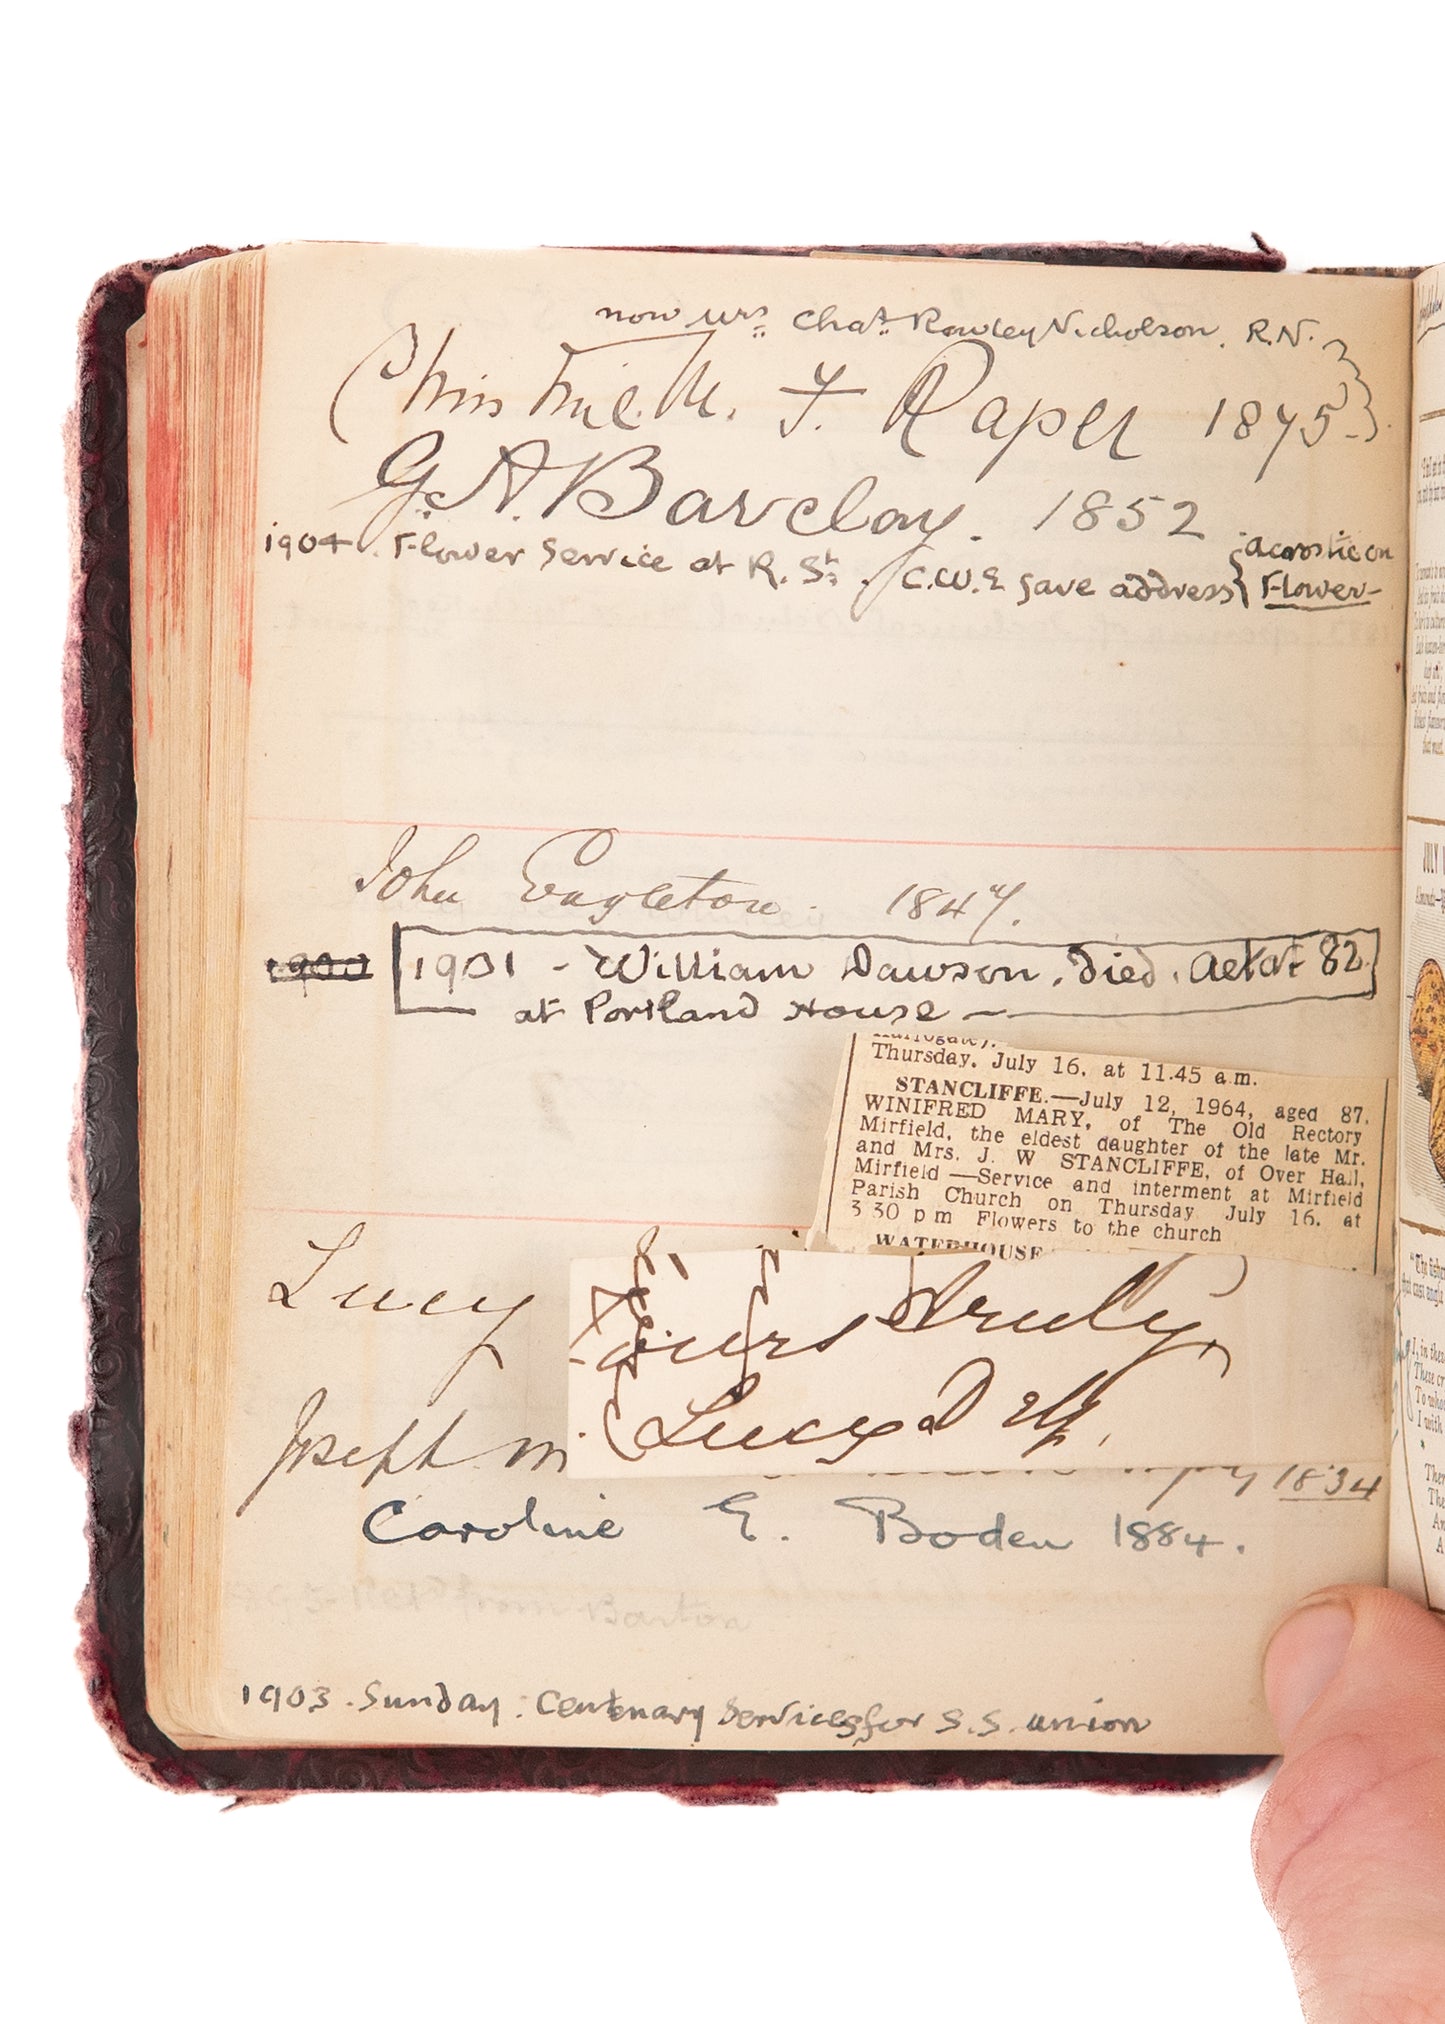 now Mrs Chas. Rowley Nicholson. R.N.
Christine M. F. Raper 1875
G. A. Barclay. 1852
1904. Flower Service at R. St. C.W.E gave address acrostic on
Flower
John Eagleton. 1847.
1900 1901 - William Dawson. died. Aetat 82
at Portland House
Thursday, July 16. at 11.45 a.m.
STANCLIFFE.—July 12, 1964, aged 87.
WINIFRED MARY, of The Old Rectory
Mirfield, the eldest daughter of the late Mr.
and Mrs. J. W STANCLIFFE, of Over Hall,
Mirfield —Service and interment at Mirfield
Parish Church on Thursday July 16. at
3 30 p m Flowers to the church
WATERHOUSE
Lucy
Yours truly
Lucy
Joseph
1834
Caroline E. Boden 1884.
1903. Sunday: Centenary Services for S.S. Union
JULY